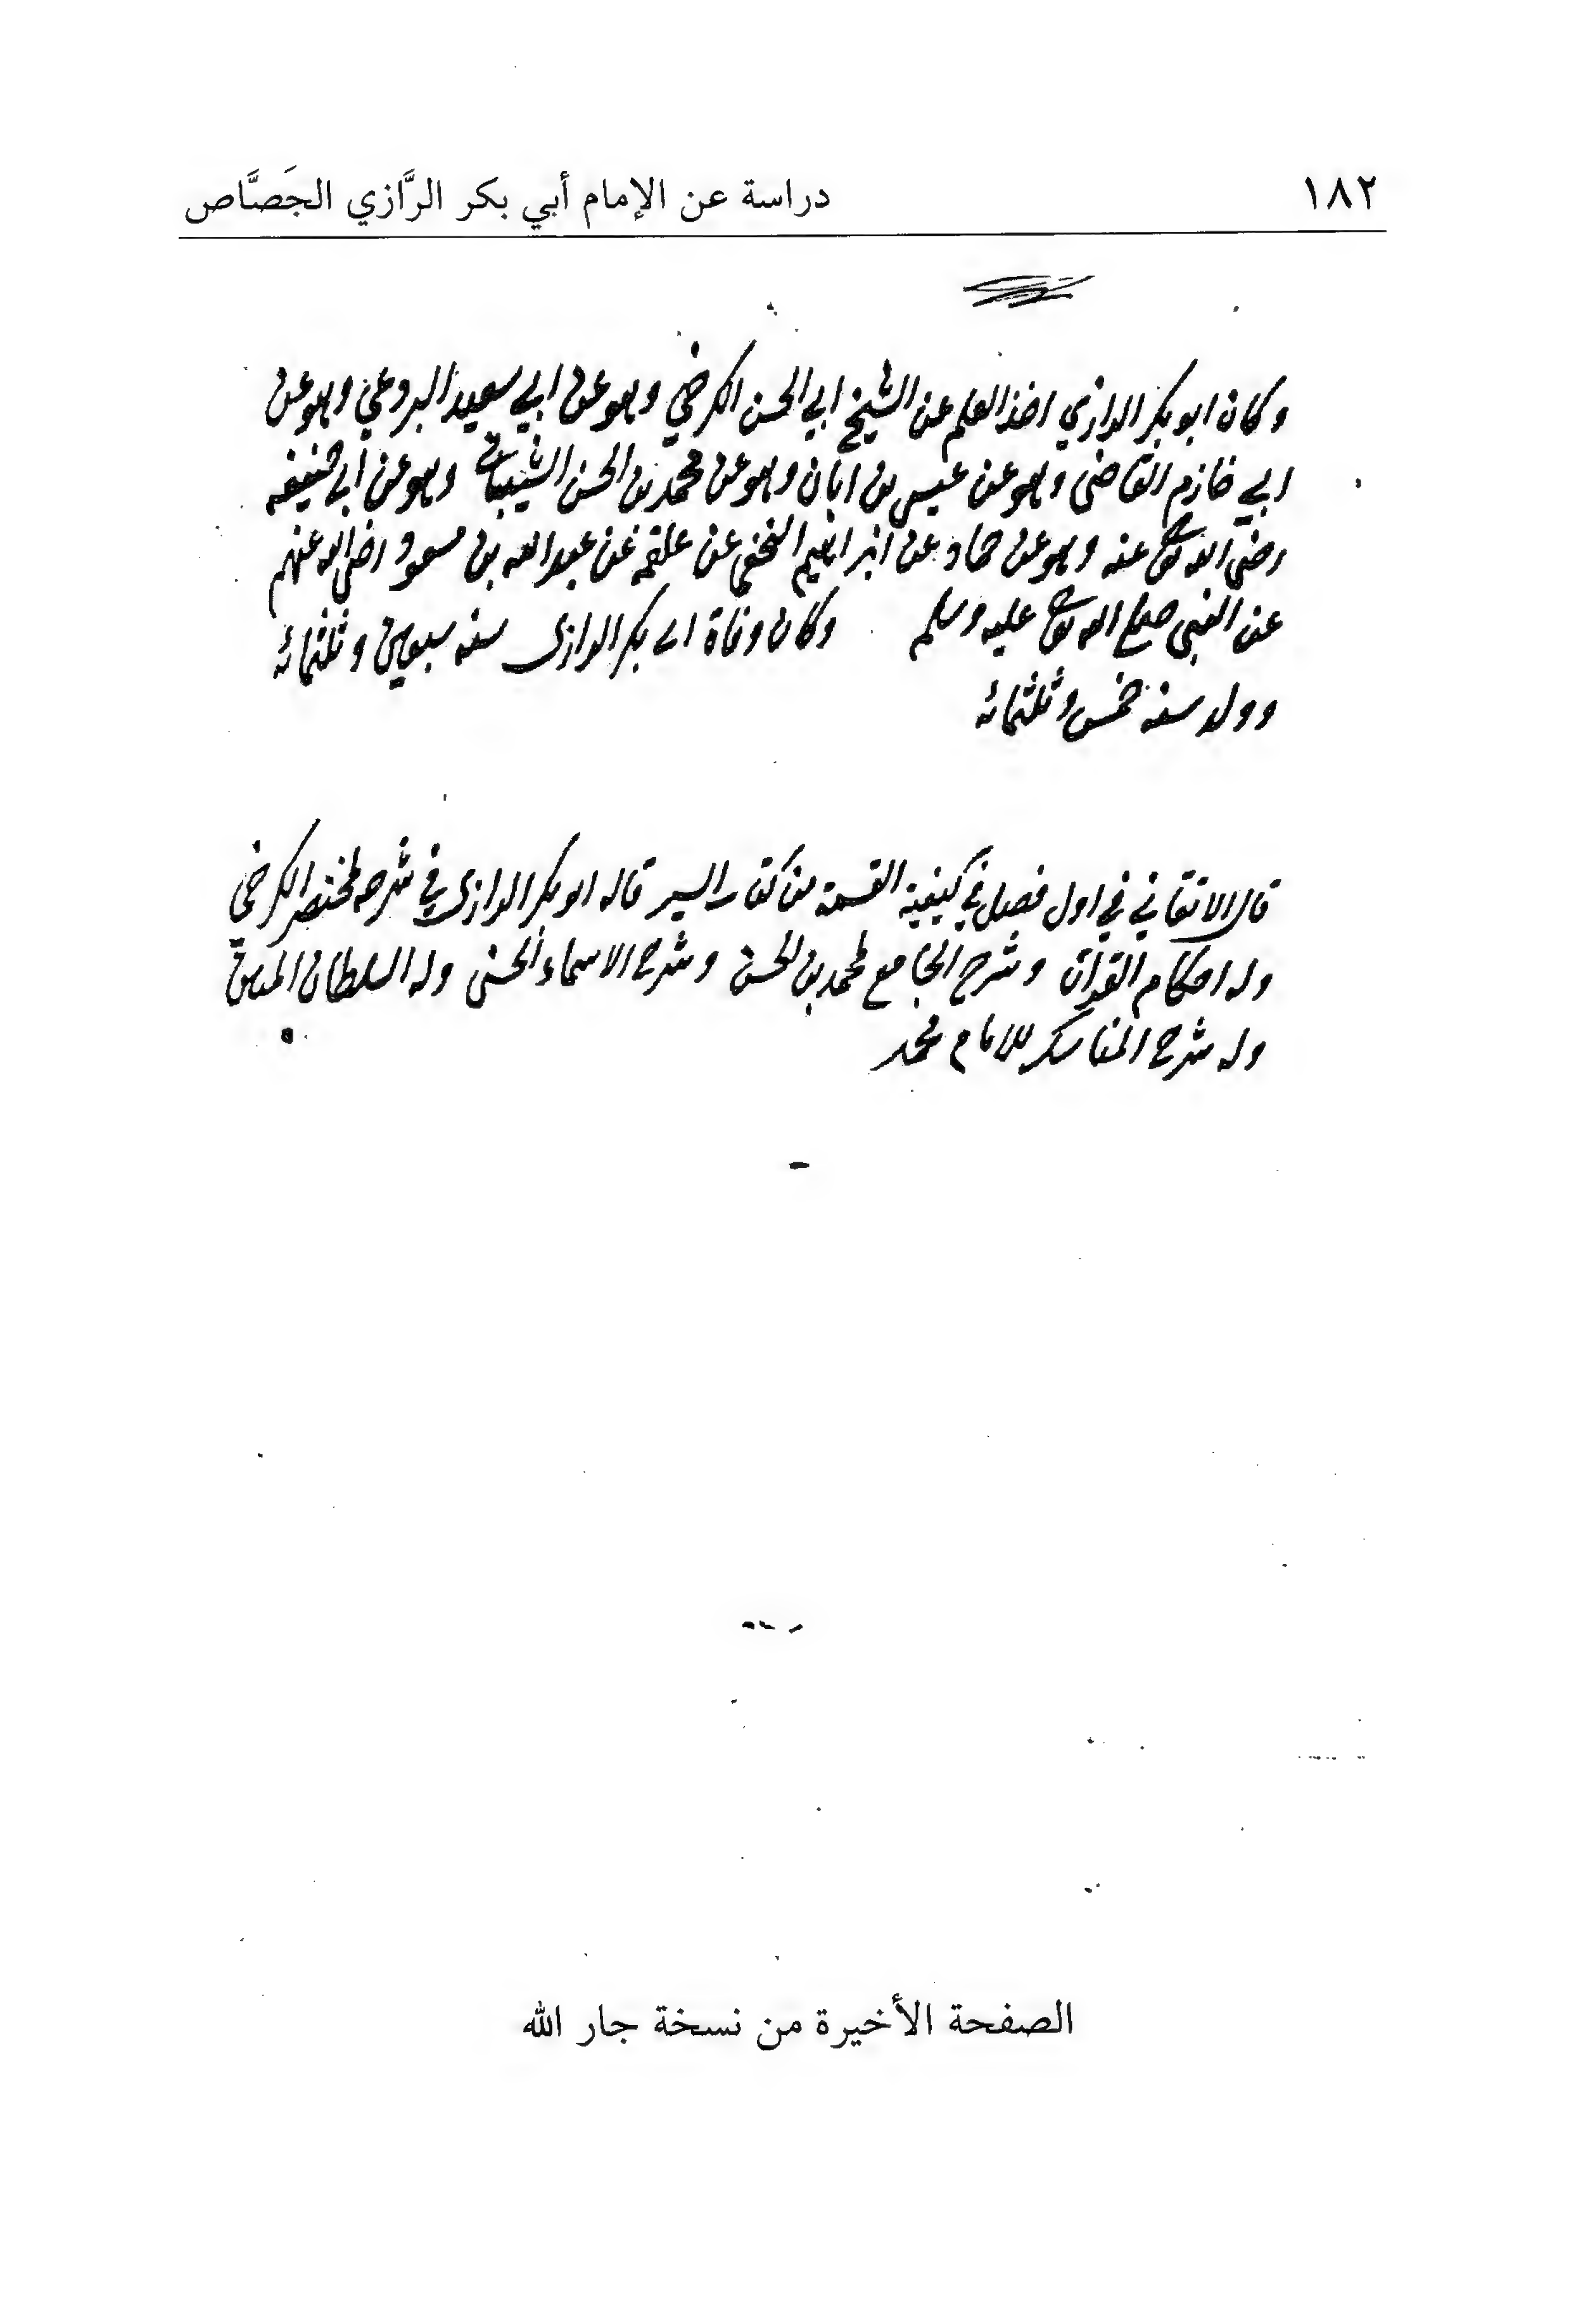 ١٨٢
دراسة عن الإمام أبي بكر الرَّازي الجَصَّاص
وكان ابو بكر الرازي اخذ العلم عن الشيخ ابي الحسن الكرخي وهو عن ابي سعيد البردعي وهو عن
ابي خازم القاضي وهو عن عيسى بن ابان وهو عن محمد بن الحسن الشيباني وهو عن أبي حنيفه
رضى الله تعالى عنه وهو عن حماد عن ابراهيم النخعي عن علقمه عن عبد الله بن مسعود رضى الله عنهم
عن النبي صلى الله تعالى عليه وسلم وكان وفاة ابي بكر الرازى سنه سبعين وثلثمائه
وولد سنه خمس وثلثمائه
قال الاتقاني في اول فصل في كيفية القسمة من كتاب السير قاله ابو بكر الرازى في شرحه لمختصر الكرخي
وله احكام القرآن وشرح الجامع لمحمد بن الحسن وشرح الاسماء الحسنى وله السلطان المبين
وله شرح المناسك للامام محمد
الصفحة الأخيرة من نسخة جار الله